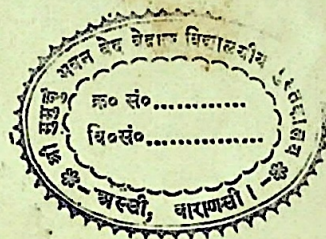 श्री मुमुक्षु भवन वेद वेदाङ्ग विद्यालयीय पुस्तकालय
क्र० सं०.............
वि०सं०.................
अस्सी, वाराणसी।